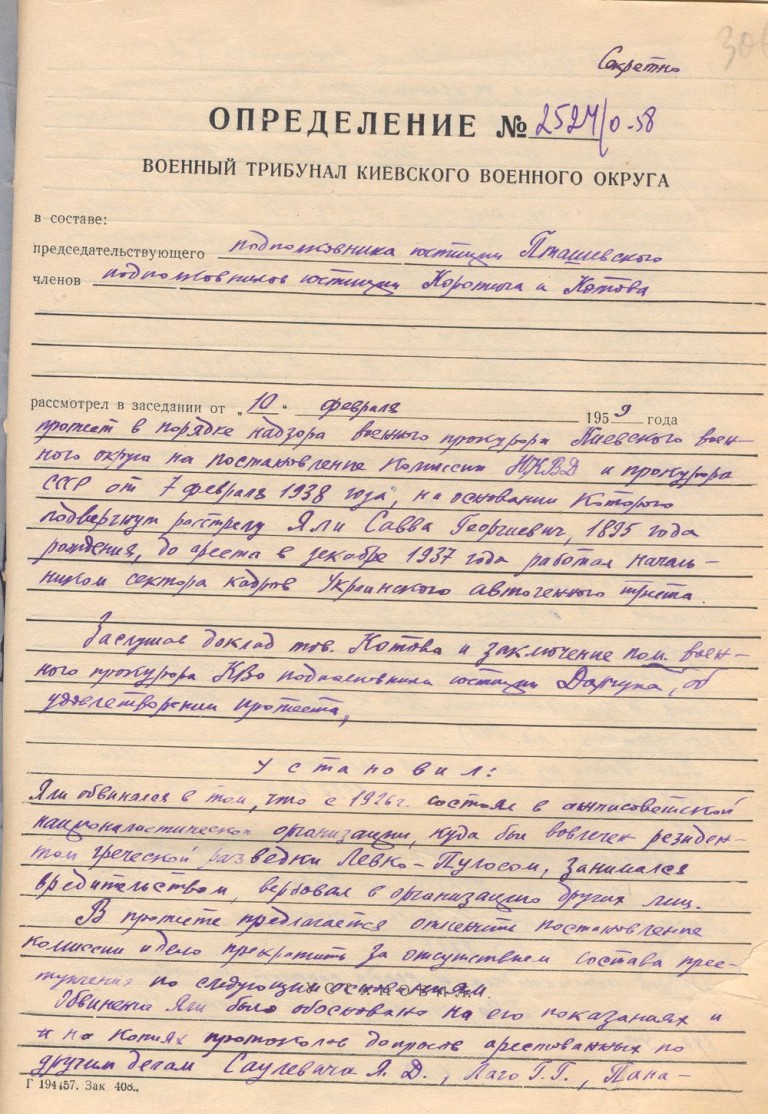 306
Секретно
ОПРЕДЕЛЕНИЕ № 2524/0-58
ВОЕННЫЙ ТРИБУНАЛ КИЕВСКОГО ВОЕННОГО ОКРУГА
в составе:
председательствующего подполковника юстиции Пташевского
членов подполковников юстиции Коротыча и Котова
рассмотрел в заседании от „10“ февраля 1959 года
протест в порядке надзора военного прокурора Киевского воен-
ного округа на постановление Комиссии НКВД и прокурора
СССР от 7 февраля 1938 года, на основании которого
подвергнут расстрелу Яли Савва Георгиевич, 1895 года
рождения, до ареста в декабре 1937 года работал началь-
ником сектора кадров Украинского авточенного треста.
Заслушав доклад тов. Котова и заключение пом. воен-
ного прокурора КВО подполковника юстиции об
удовлетворении протеста,
установил:
Яли обвинялся в том, что с 1926 г. состоял в антисоветской
националистической организации, куда был вовлечен резиден-
том греческой разведки Левко-Пулосом, занимался
вредительством, вербовал в организацию других лиц.
В протесте предлагается отменить постановление
комиссии и дело прекратить за отсутствием состава прес-
тупления по следующим основаниям.
УСТАНОВИЛ:
Обвинение Яли было обосновано на его показаниях и
и на копиях протоколов допросов арестованных по
другим делам Саулевича Я. Д., Лаго Г. Г., Пана-
Г 194157. Зак. 408..